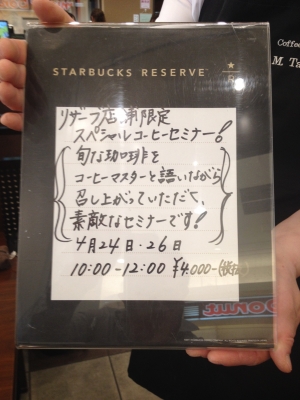 Coffee
M. Ta
STARBUCKS RESERVE
R
リザーブ店舗限定
スペシャルコーヒーセミナー!
旬な珈琲を
コーヒーマスターと語いながら
召し上がっていただく
素敵なセミナーです!
4月24日・26日
10:00-12:00 ¥4,000-(税抜)